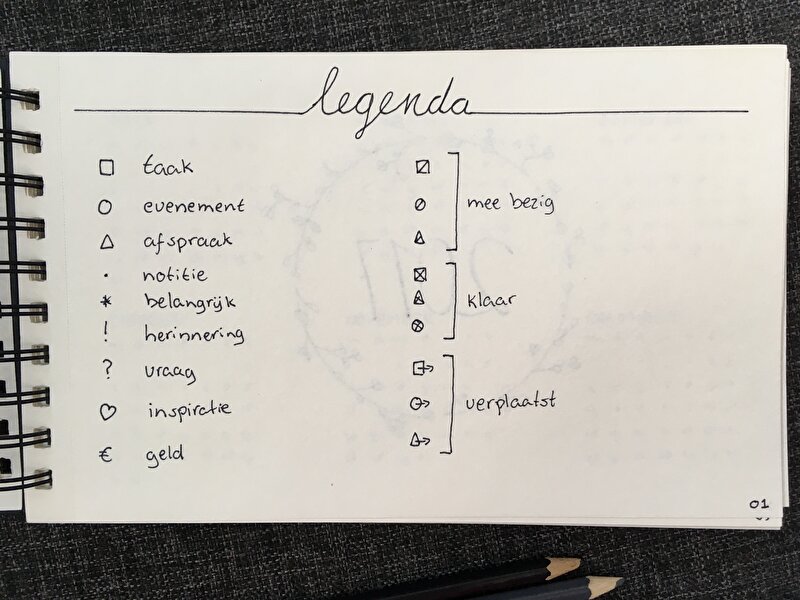 legenda
□ taak
○ evenement
△ afspraak
· notitie
* belangrijk
! herinnering
? vraag
♡ inspiratie
€ geld
mee bezig
klaar
verplaatst
2017
01